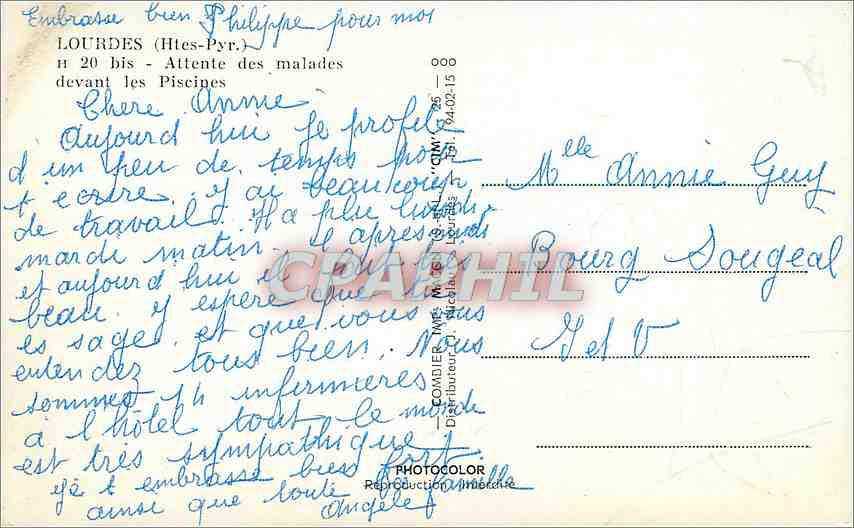 Embrasse bien Philippe pour moi
LOURDES (Htes-Pyr.)
H 20 bis - Attente des malades
devant les Piscines
Chère Annie
Aujourd hui je profite
d un peu de temps pour
t ecrire. J ai beaucoup
de travail. Il a plu lundi
mardi matin. l après midi
et aujourd hui il fait très
beau. J espère que tu
es sage et que vous vous
entendez tous bien. Nous
sommes 14 infirmieres
à l hôtel tout le monde
est très sympathique
Je t embrasse bien fort
ainsi que toute la famille
Angèle
Mlle Annie Guy
Bourg Sougeal
I et V
COMBIER IMP. MACON "CIM"
Distributeur Nicolau Lourdes Tél. 94-02-15
PHOTOCOLOR
Reproduction interdite
CPAPHIL